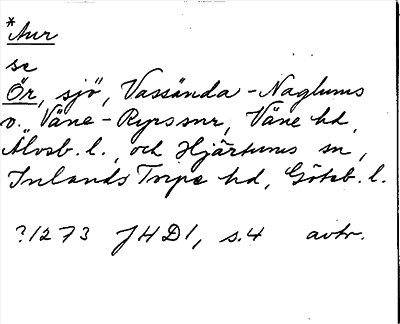 *Aur
se
Ör, sjö, Vassända-Naglums
o. Väne-Ryrs snr, Väne hd,
Älvsb. l., och Hjärtums sn,
Inlands Torpe hd, Göteb. l.
?1273 JHD 1, s. 4 avtr.